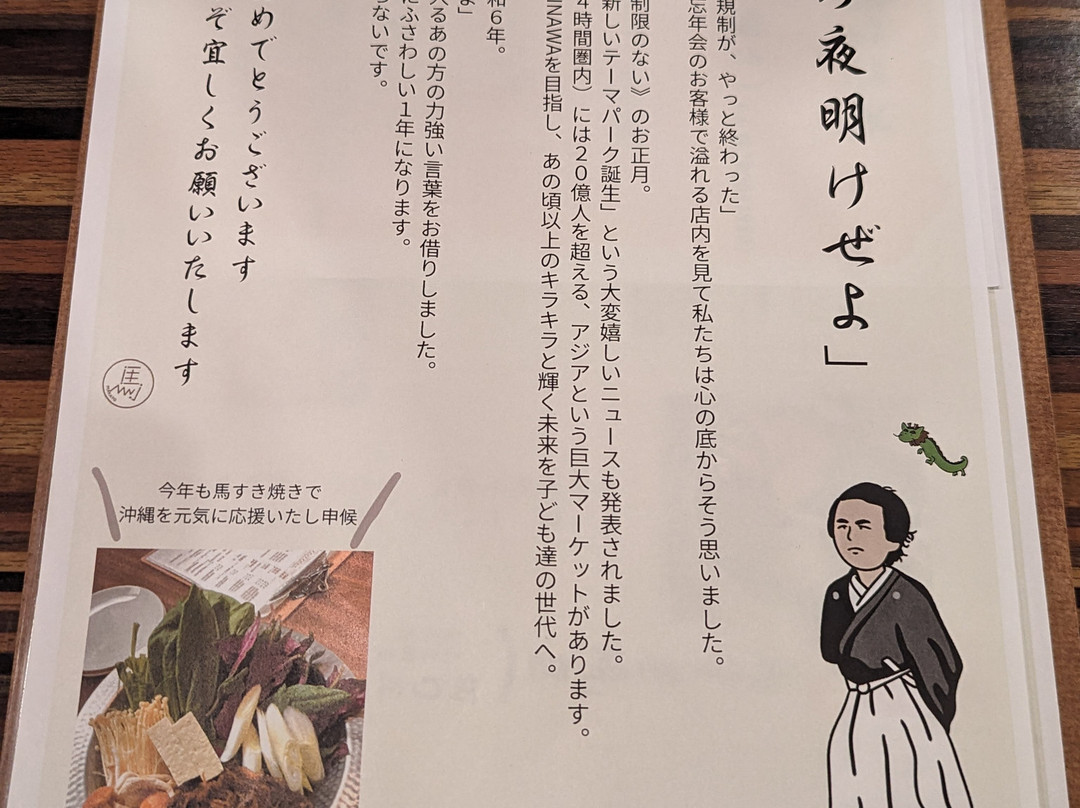 夜明けぜよ」
規制が、やっと終わった」
忘年会のお客様で溢れる店内を見て私たちは心の底からそう思いました。
制限のない》のお正月。
新しいテーマパーク誕生」という大変嬉しいニュースも発表されました。
4時間圏内）には20億人を超える、アジアという巨大マーケットがあります。
INAWAを目指し、あの頃以上のキラキラと輝く未来を子ども達の世代へ。
和6年。
よ」
入るあの方の力強い言葉をお借りしました。
にふさわしい1年になります。
らないです。
めでとうございます
ぞ宜しくお願いいたします
馬
今年も馬すき焼きで
沖縄を元気に応援いたし申候